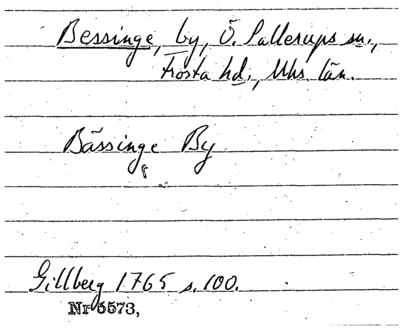 Bessinge, by, Ö. Sallerups sn.,
Frosta hd., Mhs. län.
Bässinge By
Gillberg 1765 s. 100.
Nr 5573,